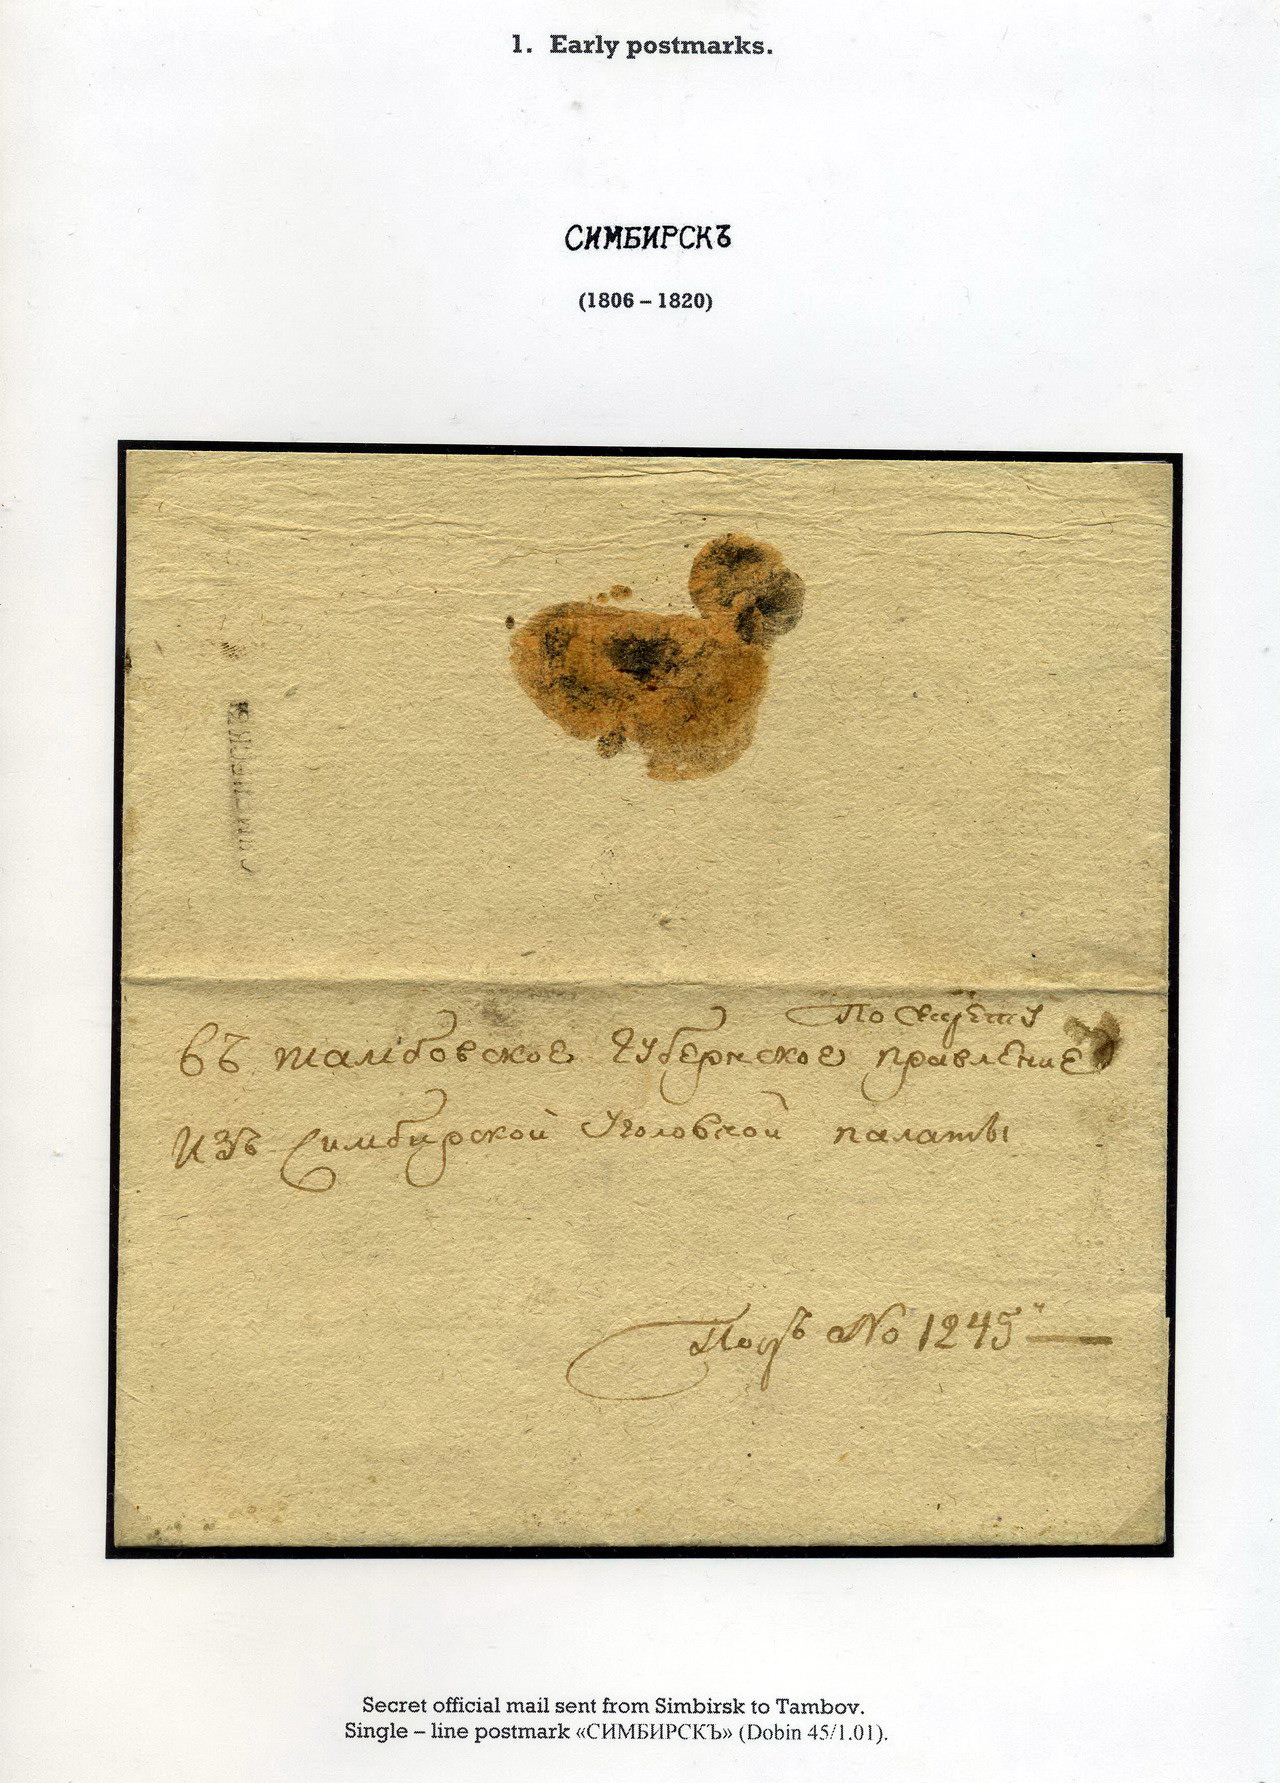 1. Early postmarks.
СИМБИРСКЪ
(1806 – 1820)
СИМБИРСКЪ
По секрету
въ тамбовское губернское правление
изъ Симбирской Уголовной палаты
Подъ No 1245
Secret official mail sent from Simbirsk to Tambov.
Single – line postmark «СИМБИРСКЪ» (Dobin 45/1.01).